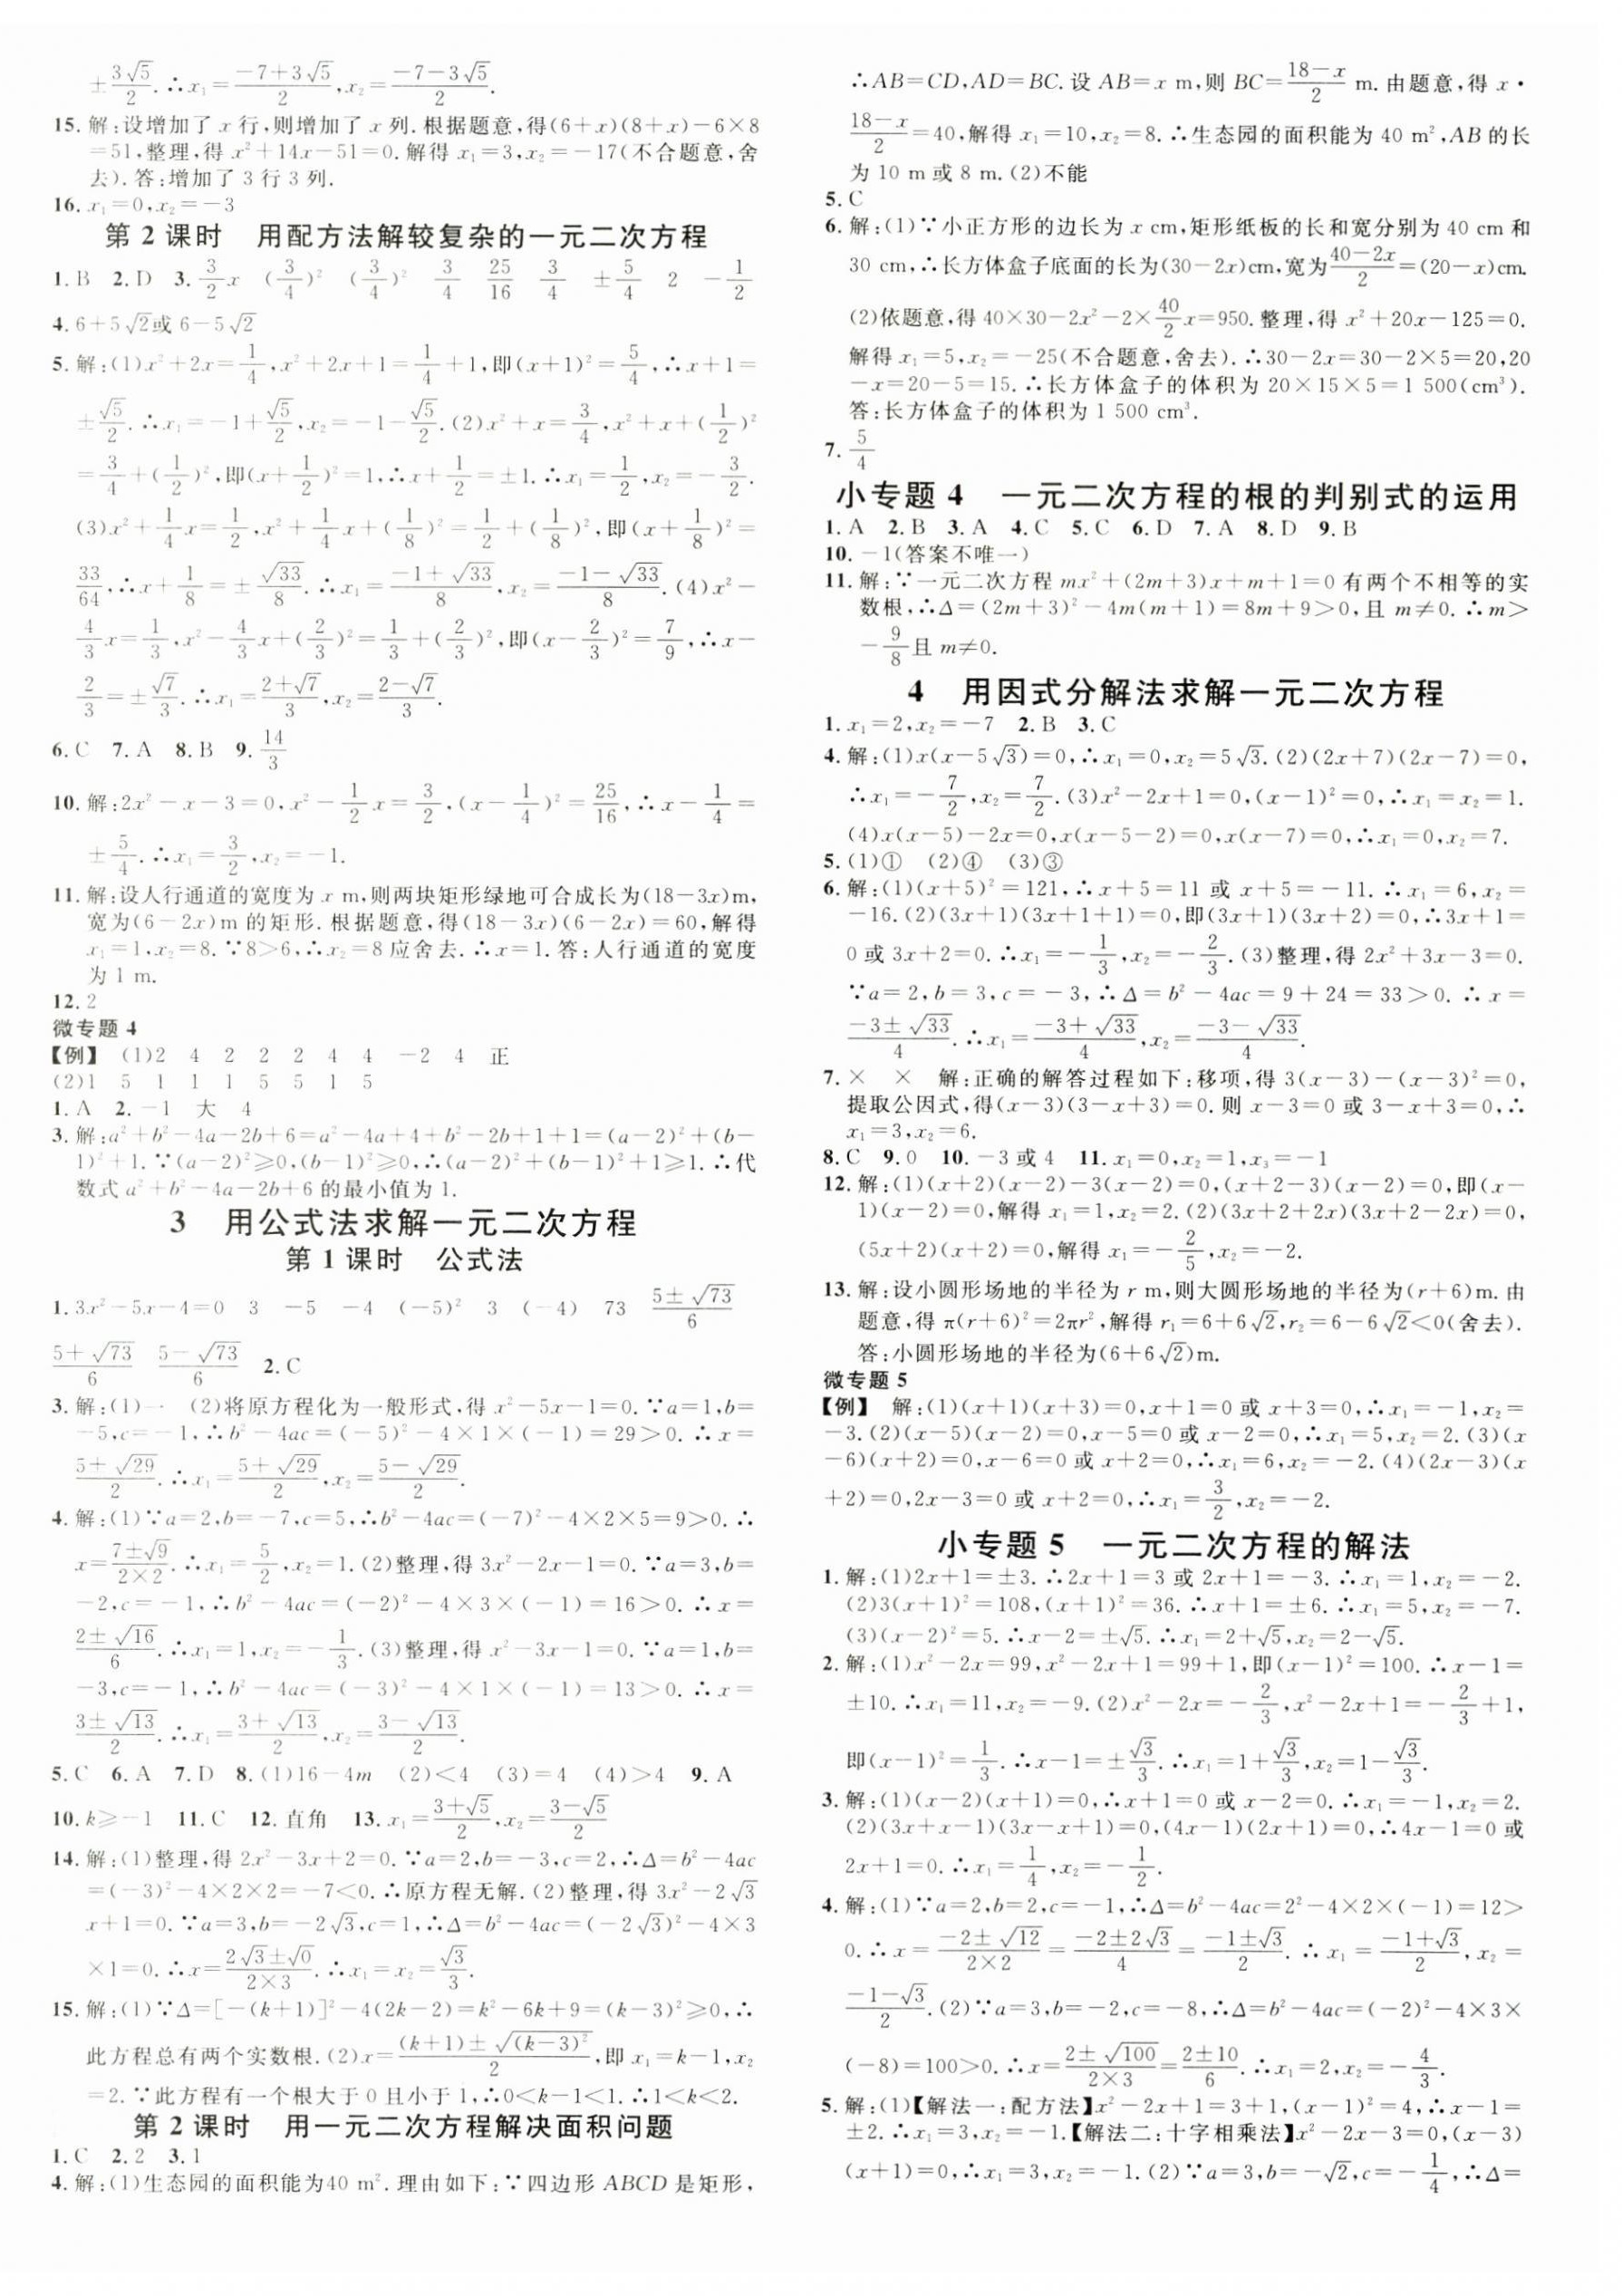 ±3√5/2.∴x₁=(-7+3√5)/2,x₂=(-7-3√5)/2.
15.解:设增加了 x 行,则增加了 x 列.根据题意,得(6+x)(8+x)-6×8
=51,整理,得 x²+14x-51=0.解得 x₁=3,x₂=-17(不合题意,舍
去).答:增加了 3 行 3 列.
16.x₁=0,x₂=-3
第 2 课时 用配方法解较复杂的一元二次方程
1.B 2.D 3.3/2x (3/4)² (3/4)² 3/4 25/16 3/4 ±5/4 2 -1/2
4.6+5√2或 6-5√2
5.解:(1)x²+2x=1/4,x²+2x+1=1/4+1,即(x+1)²=5/4,∴x+1=
±√5/2.∴x₁=-1+√5/2,x₂=-1-√5/2.(2)x²+x=3/4,x²+x+(1/2)²
=3/4+(1/2)²,即(x+1/2)²=1,∴x+1/2=±1.∴x₁=1/2,x₂=-3/2.
(3)x²+1/4x=1/2,x²+1/4x+(1/8)²=1/2+(1/8)²,即(x+1/8)²=
33/64,∴x+1/8=±√33/8.∴x₁=(-1+√33)/8,x₂=(-1-√33)/8.(4)x²-
4/3x=1/3,x²-4/3x+(2/3)²=1/3+(2/3)²,即(x-2/3)²=7/9,∴x-
2/3=±√7/3.∴x₁=(2+√7)/3,x₂=(2-√7)/3.
6.C 7.A 8.B 9.14/3
10.解:2x²-x-3=0,x²-1/2x=3/2,(x-1/4)²=25/16,∴x-1/4=
±5/4.∴x₁=3/2,x₂=-1.
11.解:设人行通道的宽度为 x m,则两块矩形绿地可合成长为(18-3x)m,
宽为(6-2x)m 的矩形.根据题意,得(18-3x)(6-2x)=60,解得
x₁=1,x₂=8.∵8>6,∴x₂=8 应舍去.∴x=1.答:人行通道的宽度
为 1 m.
12.2
微专题 4
【例】 (1)2 4 2 2 2 4 4 -2 4 正
(2)1 5 1 1 1 5 5 1 5
1.A 2.-1 大 4
3.解:a²+b²-4a-2b+6=a²-4a+4+b²-2b+1+1=(a-2)²+(b-
1)²+1.∵(a-2)²≥0,(b-1)²≥0,∴(a-2)²+(b-1)²+1≥1.∴代
数式 a²+b²-4a-2b+6 的最小值为 1.
3 用公式法求解一元二次方程
第 1 课时 公式法
1.3x²-5x-4=0 3 -5 -4 (-5)² 3 (-4) 73 (5±√73)/6
(5+√73)/6 (5-√73)/6 2.C
3.解:(1)一 (2)将原方程化为一般形式,得 x²-5x-1=0.∵a=1,b=
-5,c=-1,∴b²-4ac=(-5)²-4×1×(-1)=29>0.∴x=
(5±√29)/2.∴x₁=(5+√29)/2,x₂=(5-√29)/2.
4.解:(1)∵a=2,b=-7,c=5,∴b²-4ac=(-7)²-4×2×5=9>0.∴
x=(7±√9)/(2×2).∴x₁=5/2,x₂=1.(2)整理,得 3x²-2x-1=0.∵a=3,b=
-2,c=-1,∴b²-4ac=(-2)²-4×3×(-1)=16>0.∴x=
(2±√16)/6.∴x₁=1,x₂=-1/3.(3)整理,得 x²-3x-1=0.∵a=1,b=
-3,c=-1,∴b²-4ac=(-3)²-4×1×(-1)=13>0.∴x=
(3±√13)/2.∴x₁=(3+√13)/2,x₂=(3-√13)/2.
5.C 6.A 7.D 8.(1)16-4m (2)<4 (3)=4 (4)>4 9.A
10.k≥-1 11.C 12.直角 13.x₁=(3+√5)/2,x₂=(3-√5)/2
14.解:(1)整理,得 2x²-3x+2=0.∵a=2,b=-3,c=2,∴Δ=b²-4ac
=(-3)²-4×2×2=-7<0.∴原方程无解.(2)整理,得 3x²-2√3
x+1=0.∵a=3,b=-2√3,c=1,∴Δ=b²-4ac=(-2√3)²-4×3
×1=0.∴x=(2√3±√0)/(2×3).∴x₁=x₂=√3/3.
15.解:(1)∵Δ=[-(k+1)]²-4(2k-2)=k²-6k+9=(k-3)²≥0,∴
此方程总有两个实数根.(2)x=((k+1)±√(k-3)²)/2,即 x₁=k-1,x₂
=2.∵此方程有一个根大于 0 且小于 1,∴0<k-1<1.∴1<k<2.
第 2 课时 用一元二次方程解决面积问题
1.C 2.2 3.1
4.解:(1)生态园的面积能为40 m².理由如下:∵四边形 ABCD 是矩形,
∴AB=CD,AD=BC.设 AB=x m,则 BC=(18-x)/2 m.由题意,得 x·
(18-x)/2=40,解得 x₁=10,x₂=8.∴生态园的面积能为 40 m²,AB 的长
为 10 m 或 8 m.(2)不能
5.C
6.解:(1)∵小正方形的边长为 x cm,矩形纸板的长和宽分别为 40 cm 和
30 cm,∴长方体盒子底面的长为(30-2x)cm,宽为(40-2x)/2=(20-x)cm.
(2)依题意,得 40×30-2x²-2×40/2x=950.整理,得 x²+20x-125=0.
解得 x₁=5,x₂=-25(不合题意,舍去).∴30-2x=30-2×5=20,20
-x=20-5=15.∴长方体盒子的体积为 20×15×5=1 500(cm³).
答:长方体盒子的体积为 1 500 cm³.
7.5/4
小专题 4 一元二次方程的根的判别式的运用
1.A 2.B 3.A 4.C 5.C 6.D 7.A 8.D 9.B
10.-1(答案不唯一)
11.解:∵一元二次方程 mx²+(2m+3)x+m+1=0 有两个不相等的实
数根,∴Δ=(2m+3)²-4m(m+1)=8m+9>0,且 m≠0.∴m>
-9/8且 m≠0.
4 用因式分解法求解一元二次方程
1.x₁=2,x₂=-7 2.B 3.C
4.解:(1)x(x-5√3)=0,∴x₁=0,x₂=5√3.(2)(2x+7)(2x-7)=0,
∴x₁=-7/2,x₂=7/2.(3)x²-2x+1=0,(x-1)²=0,∴x₁=x₂=1.
(4)x(x-5)-2x=0,x(x-5-2)=0,x(x-7)=0,∴x₁=0,x₂=7.
5.(1)① (2)④ (3)③
6.解:(1)(x+5)²=121,∴x+5=11 或 x+5=-11.∴x₁=6,x₂=
-16.(2)(3x+1)(3x+1+1)=0,即(3x+1)(3x+2)=0,∴3x+1=
0 或 3x+2=0.∴x₁=-1/3,x₂=-2/3.(3)整理,得 2x²+3x-3=0.
∵a=2,b=3,c=-3,∴Δ=b²-4ac=9+24=33>0.∴x=
(-3±√33)/4.∴x₁=(-3+√33)/4,x₂=(-3-√33)/4.
7.× × 解:正确的解答过程如下:移项,得 3(x-3)-(x-3)²=0,
提取公因式,得(x-3)(3-x+3)=0.则 x-3=0 或 3-x+3=0,∴
x₁=3,x₂=6.
8.C 9.0 10.-3 或 4 11.x₁=0,x₂=1,x₃=-1
12.解:(1)(x+2)(x-2)-3(x-2)=0,(x+2-3)(x-2)=0,即(x-
1)(x-2)=0,解得 x₁=1,x₂=2.(2)(3x+2+2x)(3x+2-2x)=0,
(5x+2)(x+2)=0,解得 x₁=-2/5,x₂=-2.
13.解:设小圆形场地的半径为 r m,则大圆形场地的半径为(r+6)m.由
题意,得 π(r+6)²=2πr²,解得 r₁=6+6√2,r₂=6-6√2<0(舍去).
答:小圆形场地的半径为(6+6√2)m.
微专题 5
【例】 解:(1)(x+1)(x+3)=0,x+1=0 或 x+3=0,∴x₁=-1,x₂=
-3.(2)(x-5)(x-2)=0,x-5=0 或 x-2=0,∴x₁=5,x₂=2.(3)(x
-6)(x+2)=0,x-6=0 或 x+2=0,∴x₁=6,x₂=-2.(4)(2x-3)(x
+2)=0,2x-3=0 或 x+2=0,∴x₁=3/2,x₂=-2.
小专题 5 一元二次方程的解法
1.解:(1)2x+1=±3.∴2x+1=3 或 2x+1=-3.∴x₁=1,x₂=-2.
(2)3(x+1)²=108,(x+1)²=36.∴x+1=±6.∴x₁=5,x₂=-7.
(3)(x-2)²=5.∴x-2=±√5.∴x₁=2+√5,x₂=2-√5.
2.解:(1)x²-2x=99,x²-2x+1=99+1,即(x-1)²=100.∴x-1=
±10.∴x₁=11,x₂=-9.(2)x²-2x=-2/3,x²-2x+1=-2/3+1,
即(x-1)²=1/3.∴x-1=±√3/3.∴x₁=1+√3/3,x₂=1-√3/3.
3.解:(1)(x-2)(x+1)=0,∴x+1=0 或 x-2=0.∴x₁=-1,x₂=2.
(2)(3x+x-1)(3x-x+1)=0,(4x-1)(2x+1)=0,∴4x-1=0 或
2x+1=0.∴x₁=1/4,x₂=-1/2.
4.解:(1)∵a=2,b=2,c=-1,∴Δ=b²-4ac=2²-4×2×(-1)=12>
0.∴x=(-2±√12)/(2×2)=(-2±2√3)/4=(-1±√3)/2.∴x₁=(-1+√3)/2,x₂=
(-1-√3)/2.(2)∵a=3,b=-2,c=-8,∴Δ=b²-4ac=(-2)²-4×3×
(-8)=100>0.∴x=(2±√100)/(2×3)=(2±10)/6.∴x₁=2,x₂=-4/3.
5.解:(1)【解法一:配方法】x²-2x+1=3+1,(x-1)²=4,∴x-1=
±2.∴x₁=3,x₂=-1.【解法二:十字相乘法】x²-2x-3=0,(x-3)
(x+1)=0,∴x₁=3,x₂=-1.(2)∵a=3,b=-√2,c=-1/4,∴Δ=